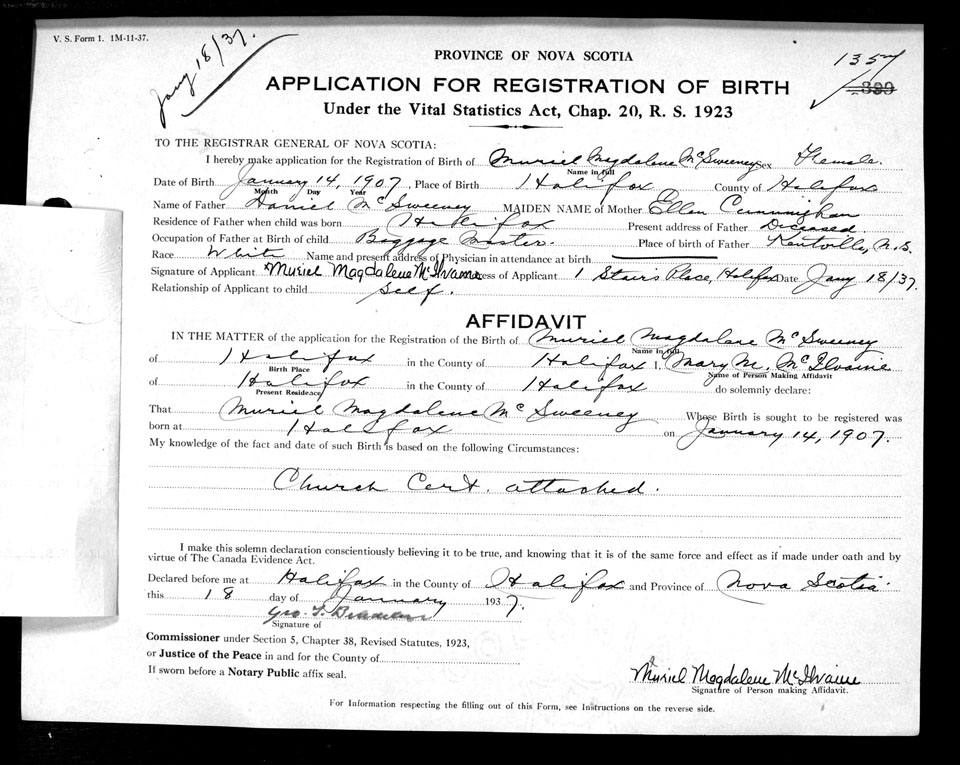 V. S. Form 1. 1M-11-37.
Jany 18/37.
PROVINCE OF NOVA SCOTIA
1357
APPLICATION FOR REGISTRATION OF BIRTH
Under the Vital Statistics Act, Chap. 20, R. S. 1923
TO THE REGISTRAR GENERAL OF NOVA SCOTIA:
I hereby make application for the Registration of Birth of Muriel Magdalene McSweeney Sex Female.
Name in full
Date of Birth January 14, 1907, Place of Birth Halifax County of Halifax
Month Day Year
Name of Father Daniel McSweeney MAIDEN NAME of Mother Ellen Cunningham
Residence of Father when child was born Halifax Present address of Father Deceased
Occupation of Father at Birth of child Baggage Master. Place of birth of Father Kentville, N.S.
Race White Name and present address of Physician in attendance at birth
Signature of Applicant Muriel Magdalene McIlvaine Address of Applicant 1 Stairs Place, Halifax Date Jany 18/37.
Relationship of Applicant to child Self.
AFFIDAVIT
IN THE MATTER of the application for the Registration of the Birth of Muriel Magdalene McSweeney
Name in full
of Halifax in the County of Halifax I, Mary M. McIlvaine
Birth Place Name of Person Making Affidavit
of Halifax in the County of Halifax do solemnly declare:
Present Residence
That Muriel Magdalene McSweeney Whose Birth is sought to be registered was
born at Halifax on January 14, 1907.
My knowledge of the fact and date of such Birth is based on the following Circumstances:
Church Cert. attached.
I make this solemn declaration conscientiously believing it to be true, and knowing that it is of the same force and effect as if made under oath and by
virtue of The Canada Evidence Act.
Declared before me at Halifax in the County of Halifax and Province of Nova Scotia
this 18 day of January 1937.
Geo. T.
Signature of
Commissioner under Section 5, Chapter 38, Revised Statutes, 1923,
or Justice of the Peace in and for the County of
If sworn before a Notary Public affix seal.
Muriel Magdalene McIlvaine
Signature of Person making Affidavit.
For Information respecting the filling out of this Form, see Instructions on the reverse side.